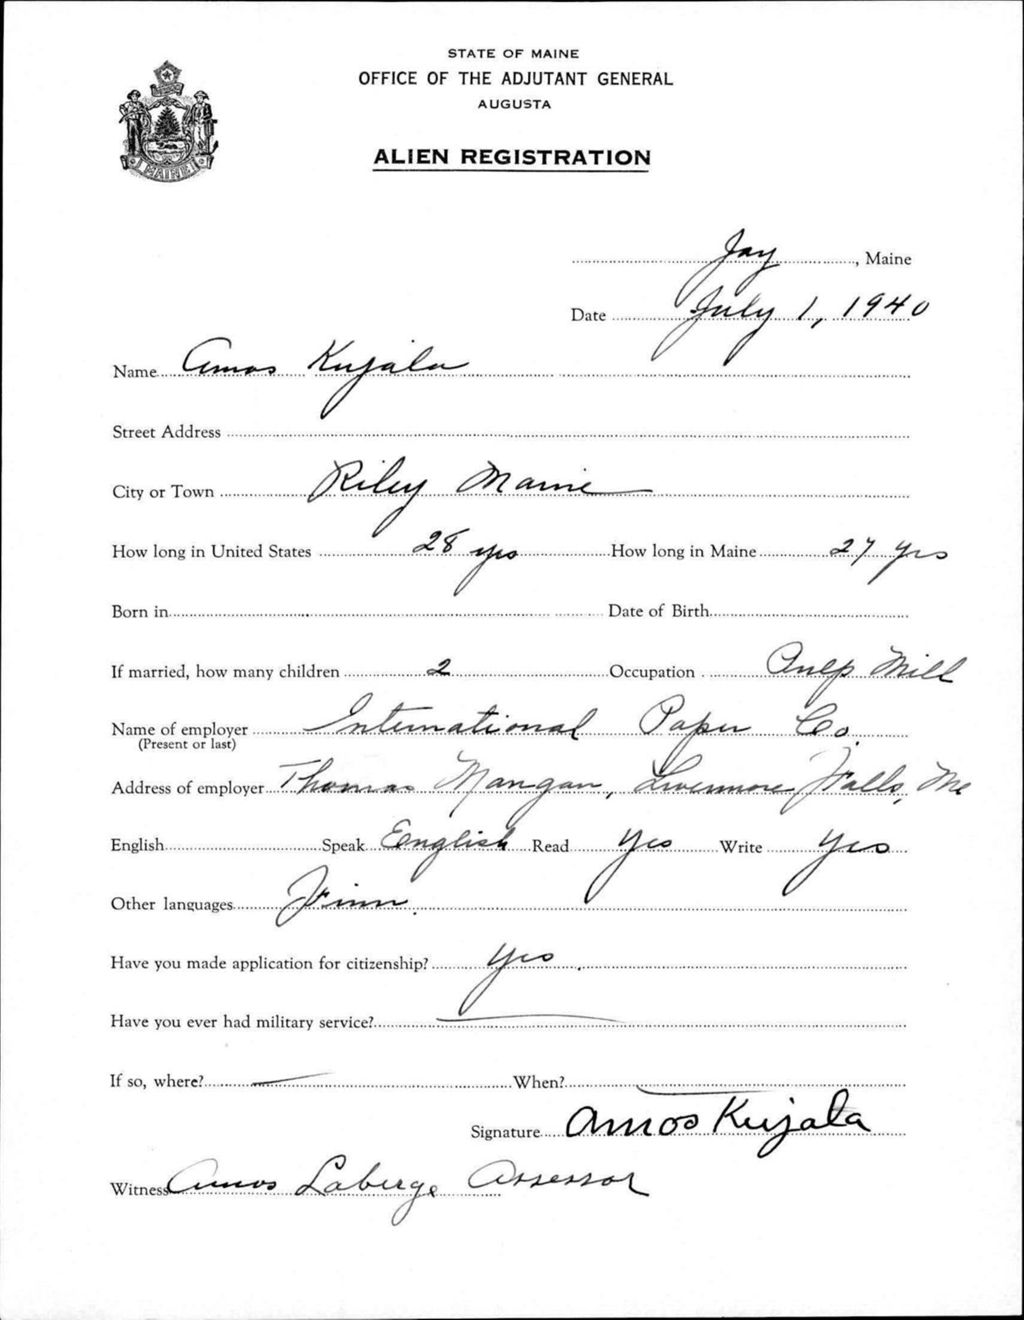 STATE OF MAINE
OFFICE OF THE ADJUTANT GENERAL
AUGUSTA
ALIEN REGISTRATION
MAINE
Jay, Maine
Date July 1, 1940
Name Amos Kujala
Street Address
City or Town Riley Maine
How long in United States 28 yrs How long in Maine 27 yrs
Born in Date of Birth
If married, how many children 2 Occupation Pulp Mill
Name of employer International Paper Co.
(Present or last)
Address of employer Thomas Mangan, Livermore Falls, Me
English Speak English Read Yes Write Yes
Other languages Finn.
Have you made application for citizenship? Yes.
Have you ever had military service? —
If so, where? — When? —
Signature Amos Kujala
Witness Amos Laberge Assessor